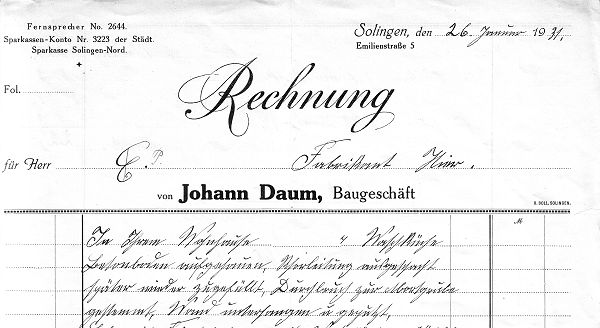 Fernsprecher No. 2644.
Sparkassen-Konto Nr. 3223 der Städt.
Sparkasse Solingen-Nord.
Solingen, den 26. Januar 1931.
Emilienstraße 5
Fol.
Rechnung
für Herr E. P. Fabrikant Hier.
von Johann Daum, Baugeschäft
R. BOLL, SOLINGEN.
M
In Ihrem Wohnhause " Waschküche
Betonboden aufgehauen, Rohrleitung aufgesucht
später wieder zugefüllt, Durchbruch zur
gestemmt, Wand unterfangen u geputzt,